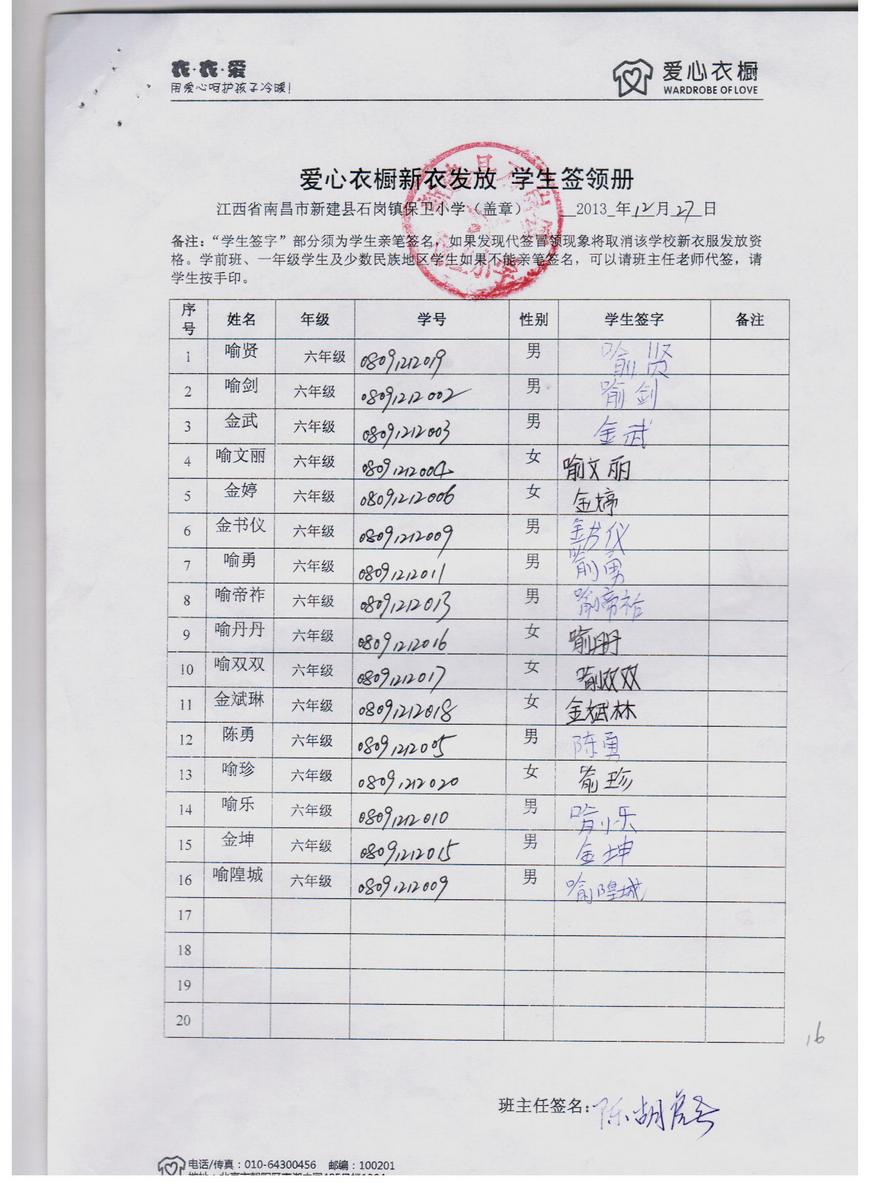 衣·衣·爱
用爱心呵护孩子冷暖!
爱心衣橱
WARDROBE OF LOVE
爱心衣橱新衣发放 学生签领册
江西省南昌市新建县石岗镇保卫小学（盖章） 2013 年 12 月 27 日
备注：“学生签字”部分须为学生亲笔签名，如果发现代签冒领现象将取消该学校新衣服发放资
格。学前班、一年级学生及少数民族地区学生如果不能亲笔签名，可以请班主任老师代签，请
学生按手印。
序号 姓名 年级 学号 性别 学生签字 备注
1 喻贤 六年级 08091212019 男 喻贤
2 喻剑 六年级 08091212002 男 喻剑
3 金武 六年级 08091212003 男 金武
4 喻文丽 六年级 08091212004 女 喻文丽
5 金婷 六年级 08091212006 女 金婷
6 金书仪 六年级 08091212009 男 金书仪
7 喻勇 六年级 08091212011 男 喻勇
8 喻帝祚 六年级 08091212013 男 喻帝祚
9 喻丹丹 六年级 08091212016 女 喻丹丹
10 喻双双 六年级 08091212017 女 喻双双
11 金斌琳 六年级 08091212018 女 金斌林
12 陈勇 六年级 08091212005 男 陈勇
13 喻珍 六年级 08091212020 女 喻珍
14 喻乐 六年级 08091212010 男 喻乐
15 金坤 六年级 08091212015 男 金坤
16 喻隍城 六年级 08091212009 男 喻隍城
17
18
19
20
16
班主任签名: 陈胡
电话/传真：010-64300456 邮编：100201